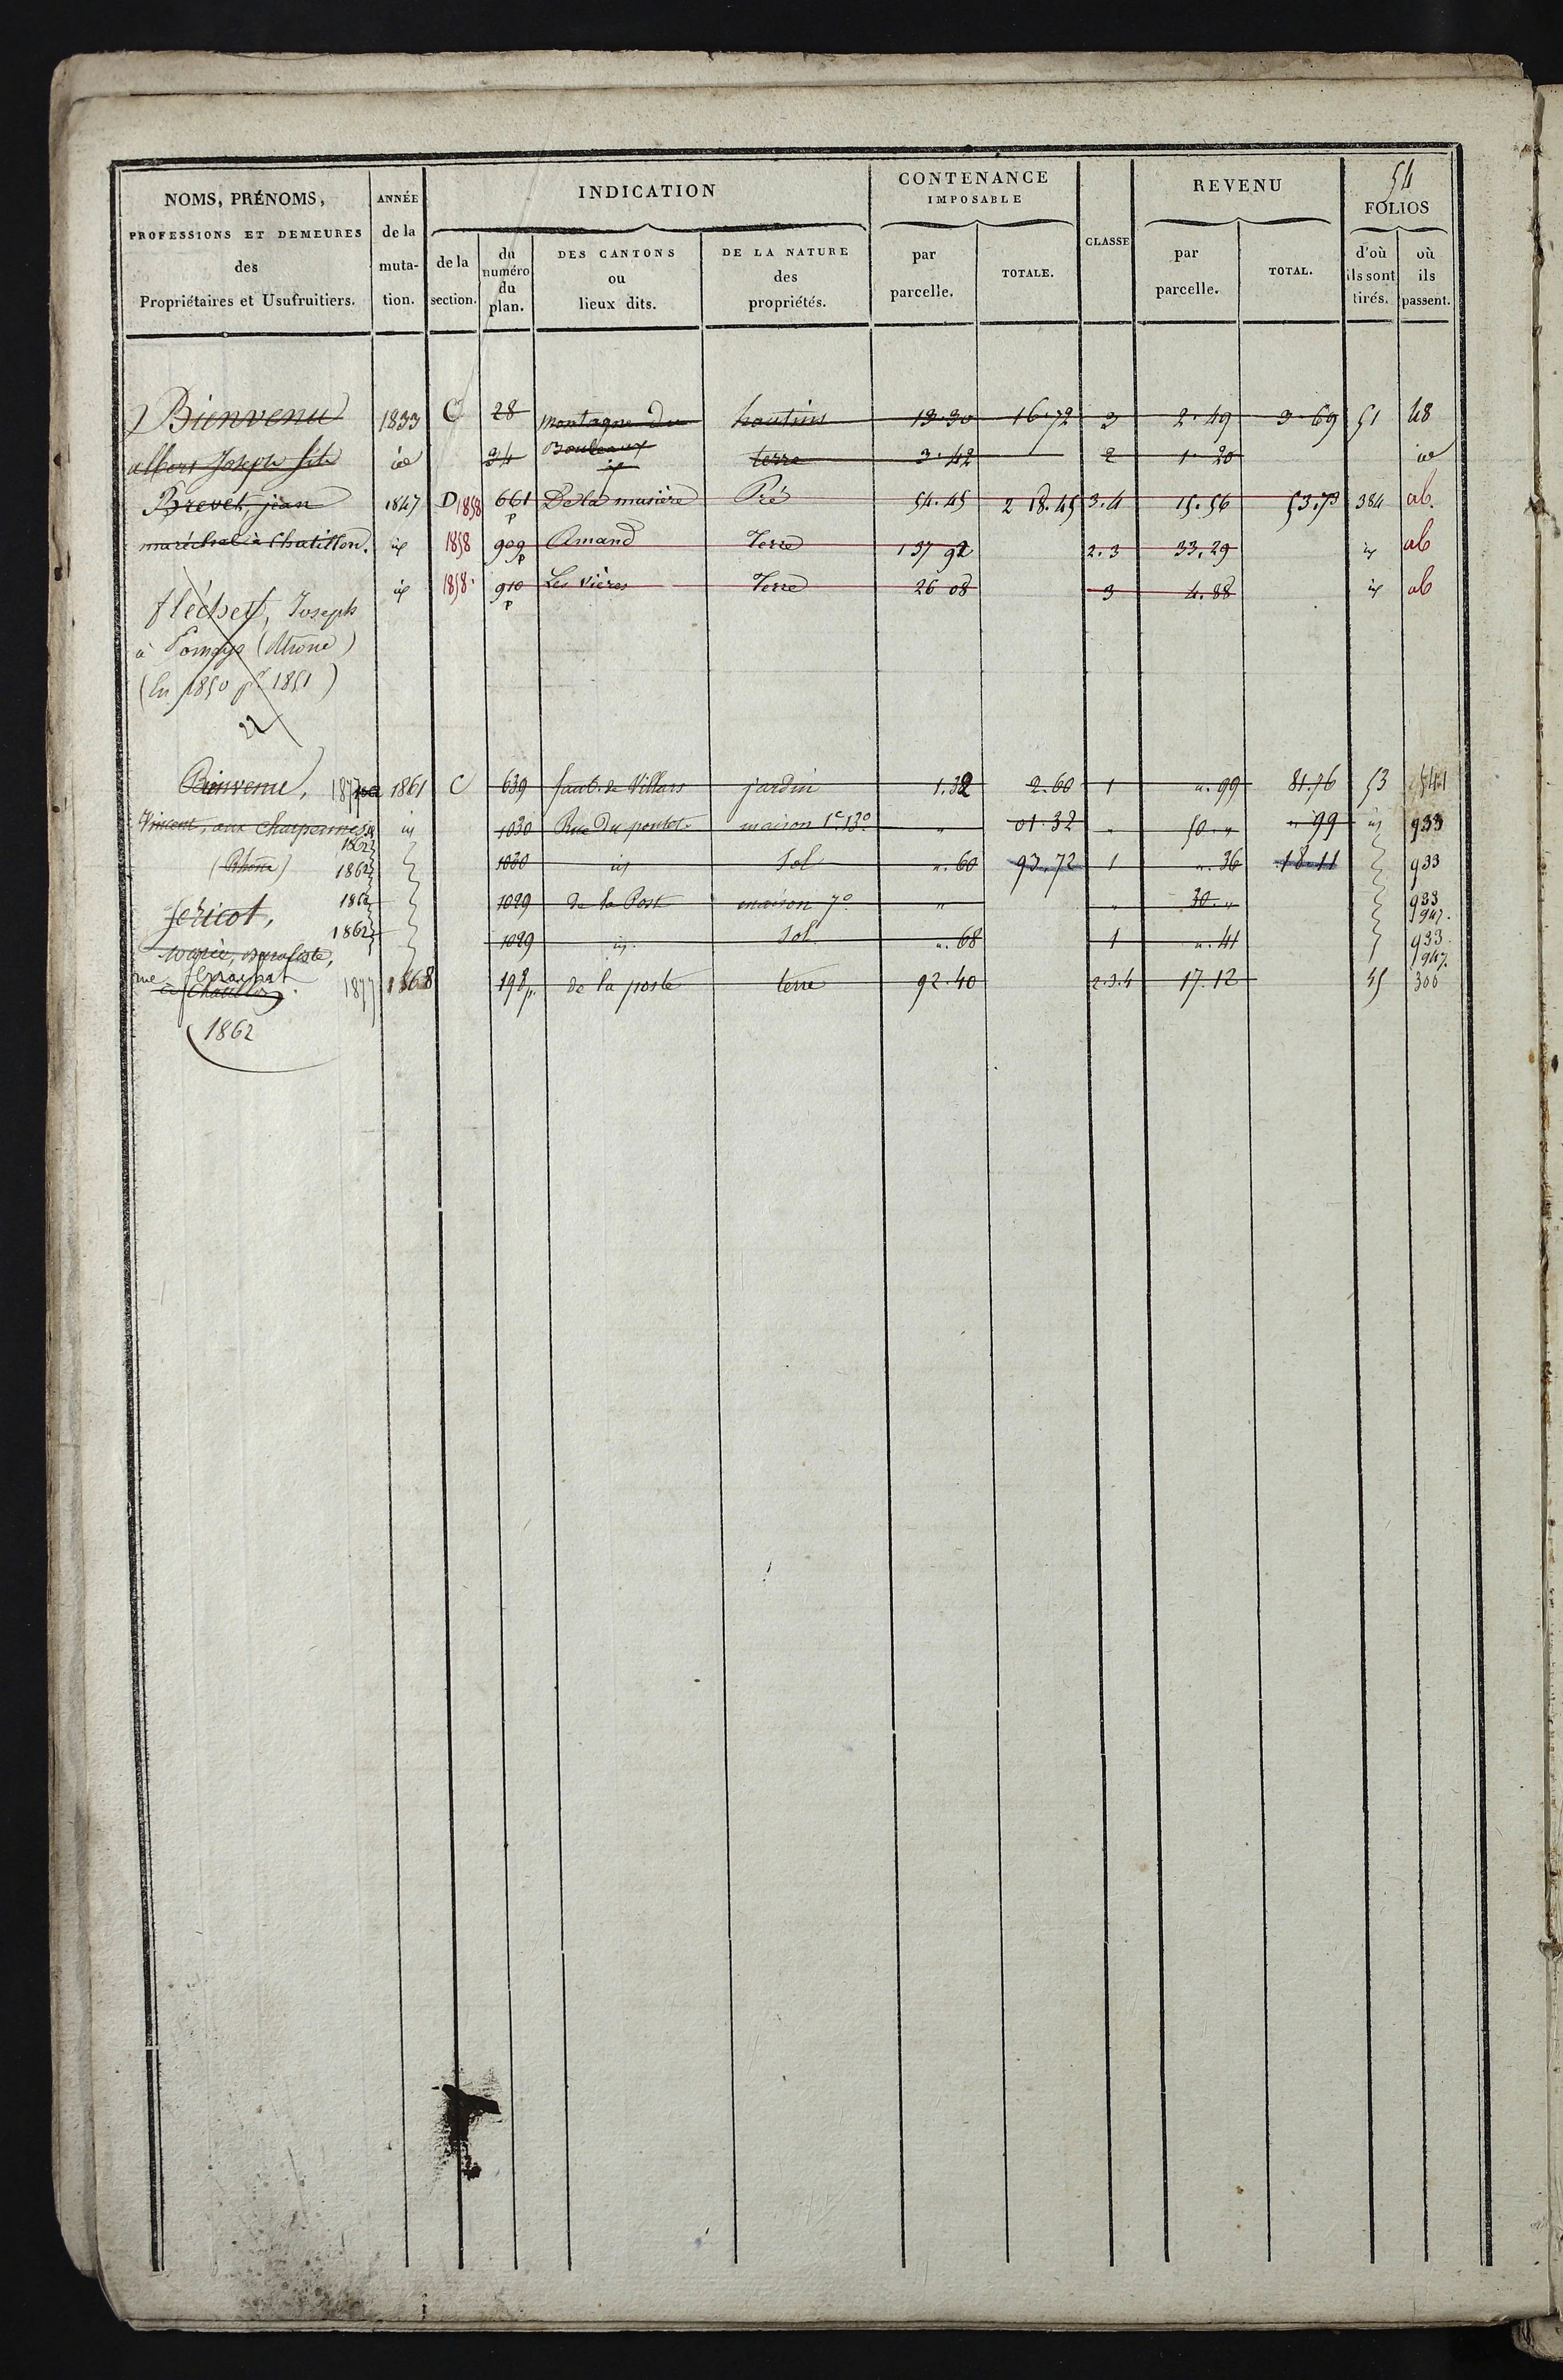 54
NOMS, PRÉNOMS, PROFESSIONS ET DEMEURES des Propriétaires et Usufruitiers.
ANNÉE de la muta- tion.
INDICATION
de la section.
du numéro du plan.
DES CANTONS ou lieux dits.
DE LA NATURE des propriétés.
CONTENANCE IMPOSABLE
par parcelle.
TOTALE.
CLASSE
REVENU
par parcelle.
TOTAL.
FOLIOS
d'où ils sont tirés.
où ils passent.
Bienvenu 1833 C 28 montagne du hautins 13.30 16.72 3 2.49 3.69 51 48
albert Joseph fils id 34 Bouleaux id terre 3.42 2 1.20 id
Brevet, jean 1847 D 1858 661 p De la musière Pré 54.45 2 18.45 3.4 15.56 53.73 384 ab.
maréchal à Chatillon. id 1858 909 p Amand Terre 1 37 92 2.3 33.29 id ab
id 1858. 910 p Les vières Terre 26 08 3 4.88 id ab
fléchet, Joseph
à Pomeys (Rhone)
(En 1850 pr 1851)
Bienvenu, 1877 1861 C 639 faub. de Villars jardin 1.32 2.60 1 ". 99 81.76 53 541
Vincent, aux Charpennes id 1030 Rue Du pontet. maison 1e. 13o " 01.32 " 50. " " 99 id 933
1862
(Rhône) 1862 1030 id Sol ". 60 93.72 1 ". 36 18.11 933
1862 1029 de la Port maison 7o " " 30. " 933
947.
Jéricot,
1862 1029 id. Sol ". 68 1 ". 41 933.
947.
rue ferrachat
à Chatillon. 1877 1868 198 p. de la poste terre 92.40 2.3.4 17.12 45 306
1862